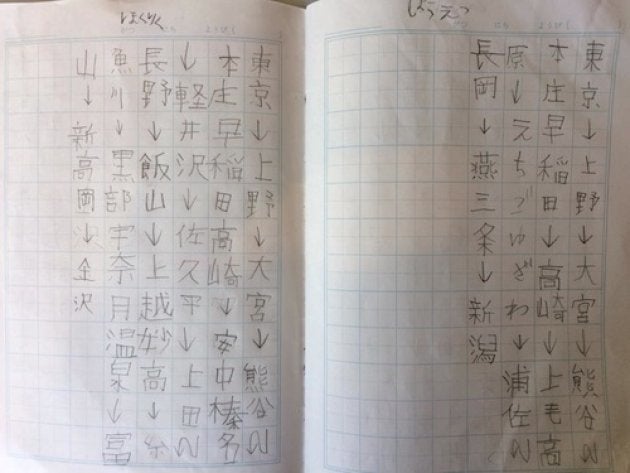 じょうえつ
東京↓上野↓大宮↓熊谷↓
本庄早稲田↓高崎↓上毛高
原↓えちごゆざわ↓浦佐↓
長岡↓燕三条↓新潟
ほくりく
東京↓上野↓大宮↓熊谷↓
本庄早稲田高崎↓安中榛名
↓軽井沢↓佐久平↓上田↓
長野↓飯山↓上越妙高↓糸
魚川↓黒部宇奈月温泉↓富
山↓新高岡↓金沢